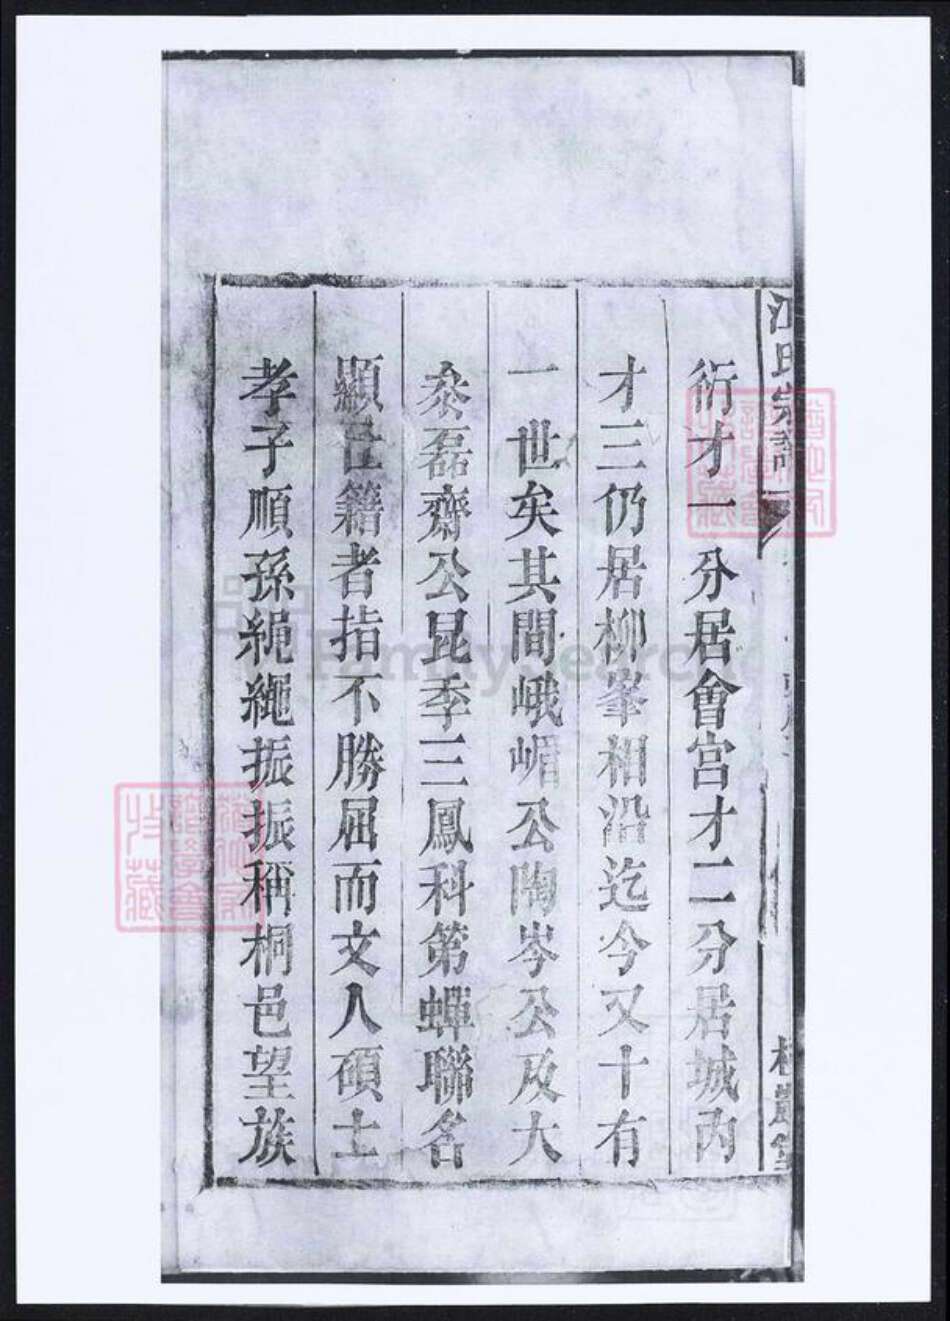 江氏宗譜
衍才一分居會宮才二分居城內
才三仍居柳峯相沿迄今又十有
一世矣其間峨嵋公陶岑公及大
叅磊齋公昆季三鳳科第蟬聯名
顯仕籍者指不勝屈而文人碩士
孝子順孫繩繩振振稱桐邑望族
FamilySearch